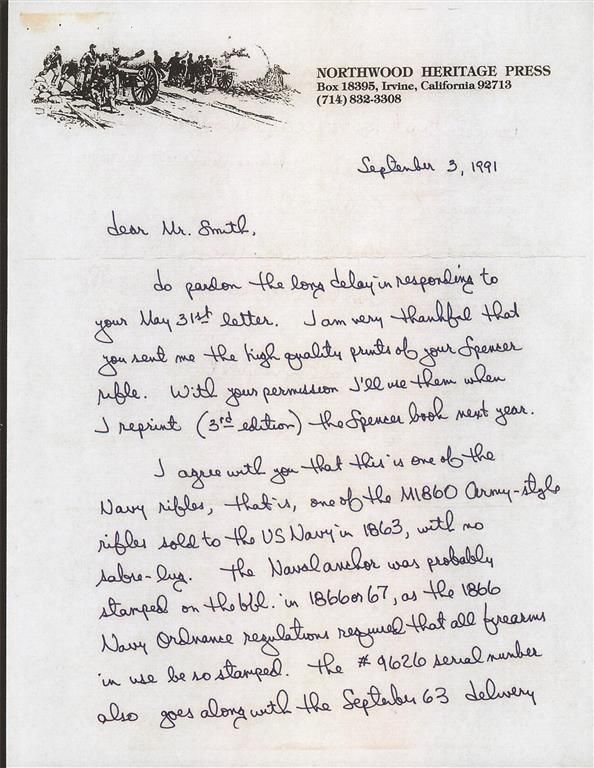 NORTHWOOD HERITAGE PRESS
Box 18395, Irvine, California 92713
(714) 832-3308
September 3, 1991
dear Mr. Smith,
do pardon the long delay in responding to
your May 31st letter. I am very thankful that
you sent me the high quality prints of your Spencer
rifle. With your permission I'll use them when
I reprint (3rd edition) the Spencer book next year.
I agree with you that this is one of the
Navy rifles, that is, one of the M1860 Army-style
rifles sold to the US Navy in 1863, with no
sabre-lug. The Naval anchor was probably
stamped on the bbl. in 1866 or 67, as the 1866
Navy Ordnance regulations required that all firearms
in use be so stamped. The # 9626 serial number
also goes along with the September 63 delivery